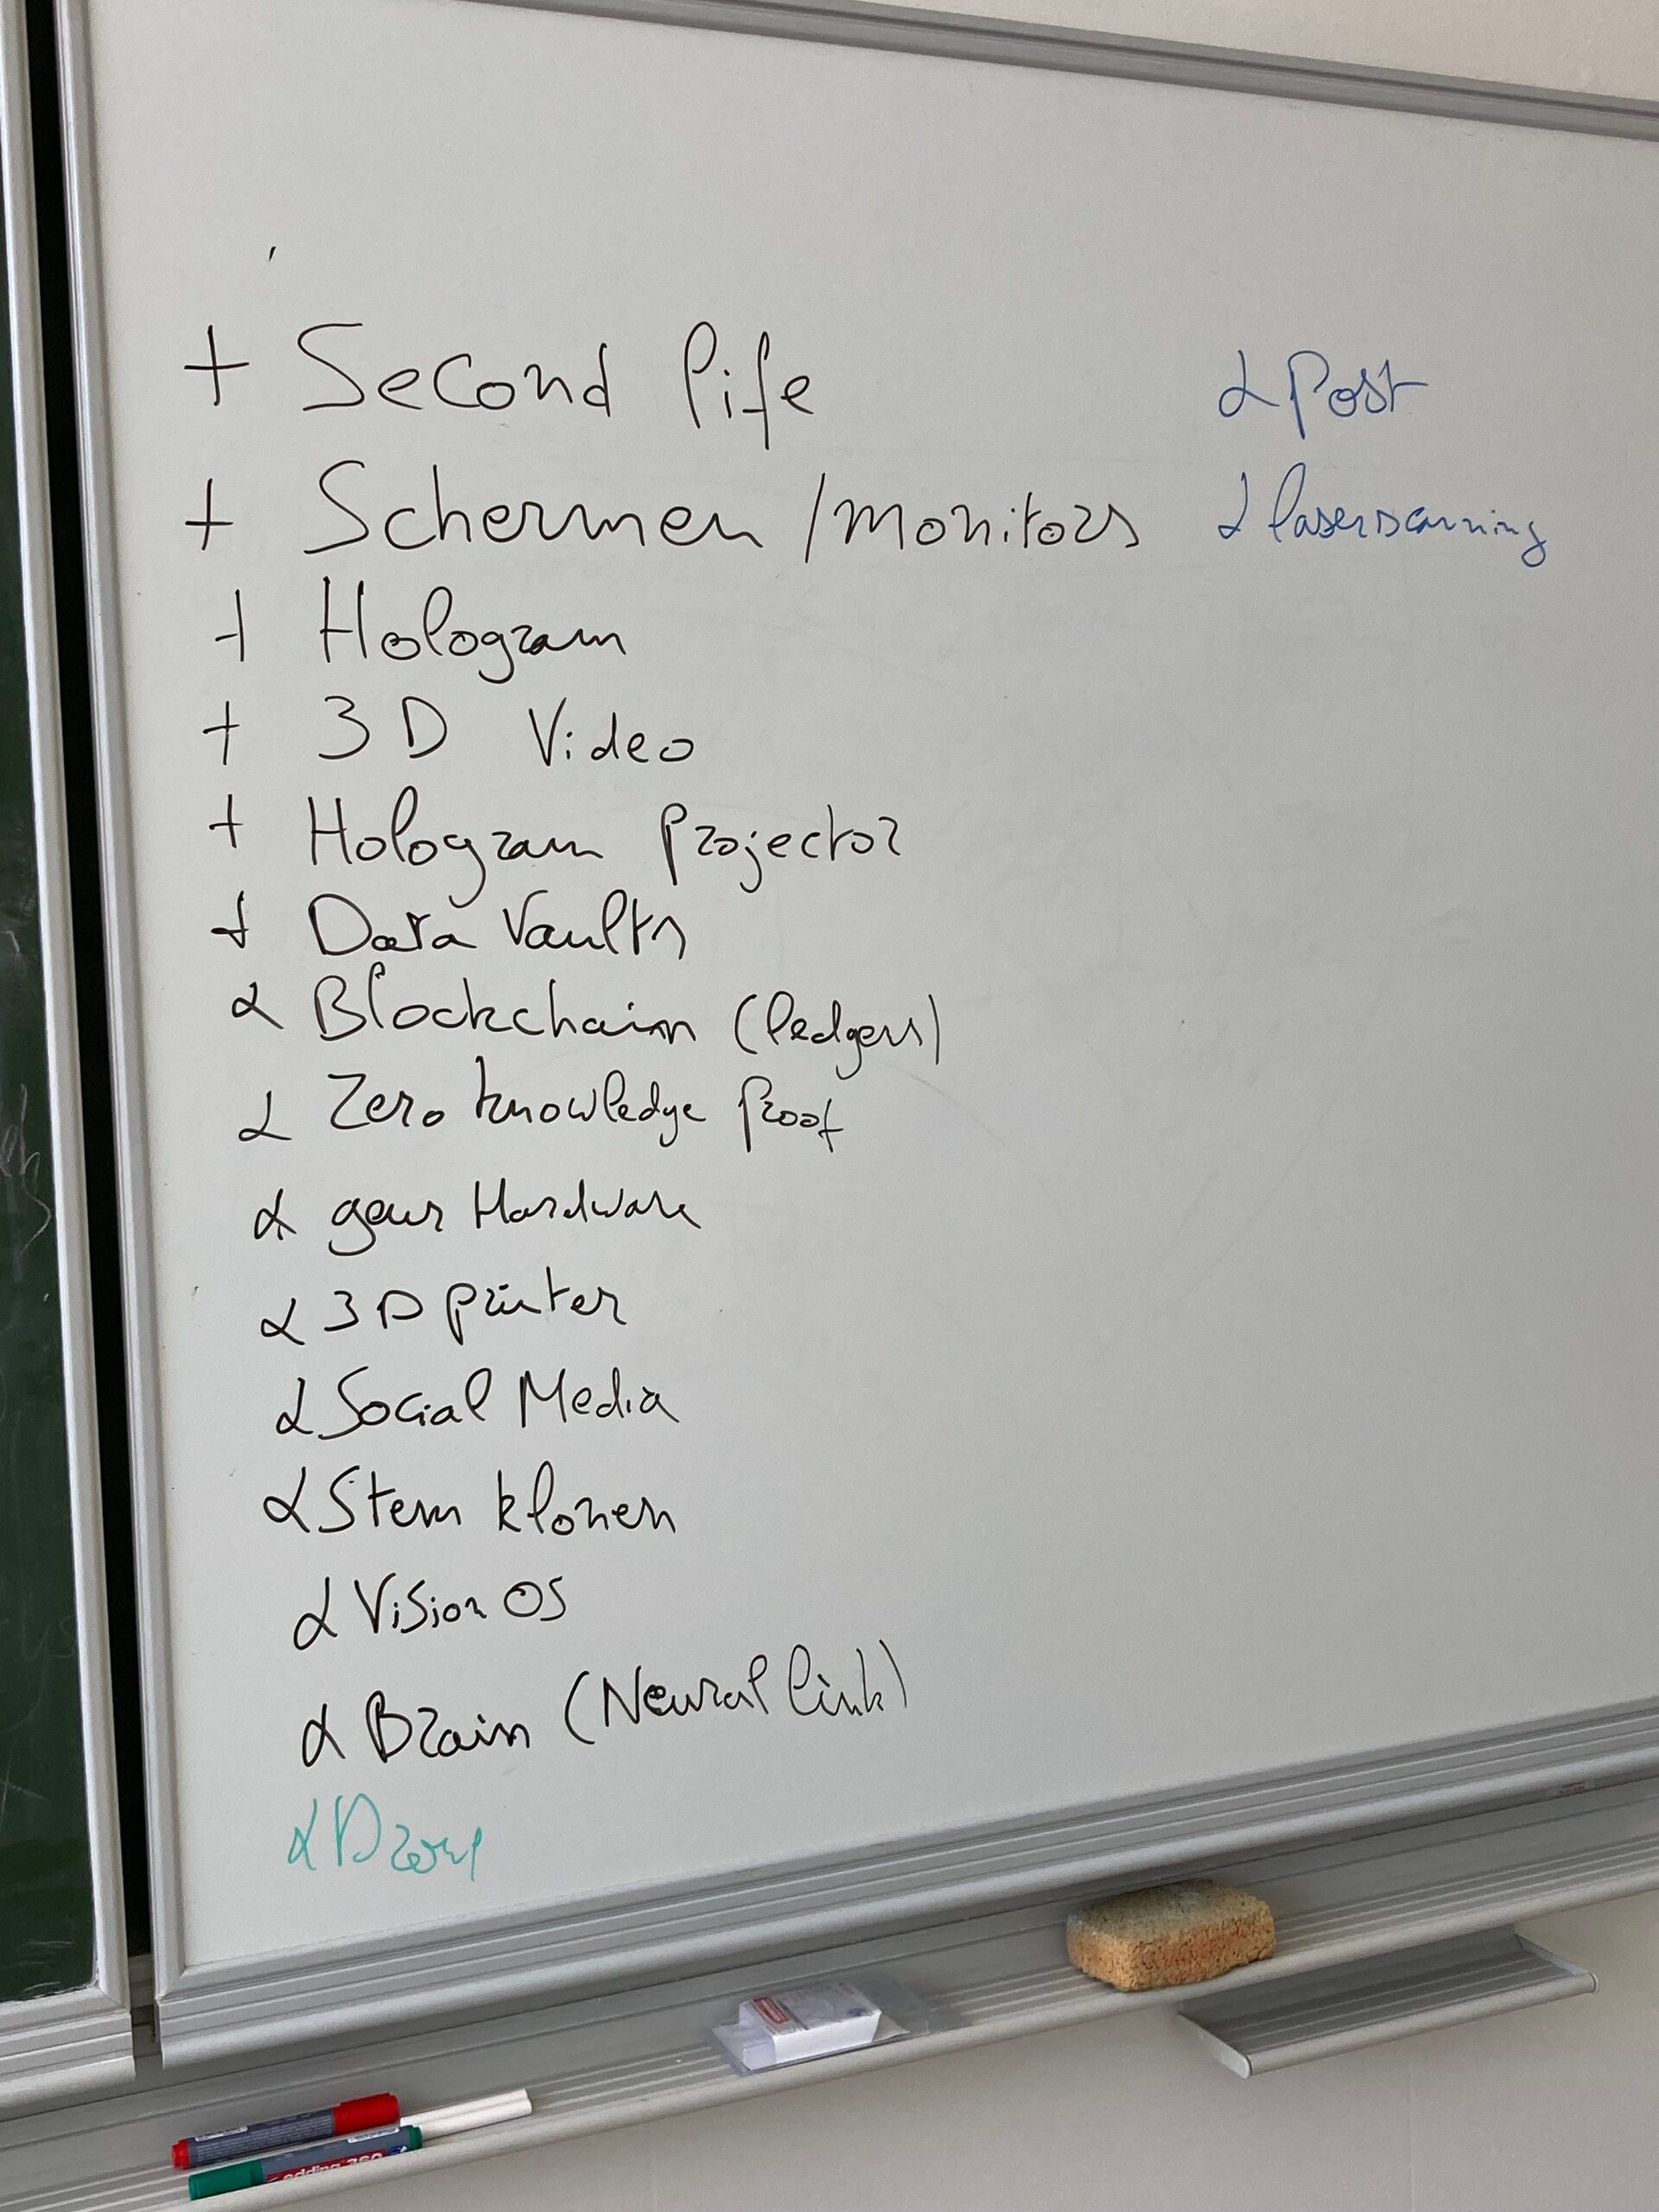 + Second life
+ Schermen / monitors
+ Hologram
+ 3D Video
+ Hologram projector
+ Data Vaults
+ Blockchain (ledgers)
+ Zero knowledge proof
+ geur Hardware
+ 3D printer
+ Social Media
+ Stem klonen
+ Vision OS
+ Brain (Neural link)
+ Drone
+ Post
+ laserscanning
edding 360